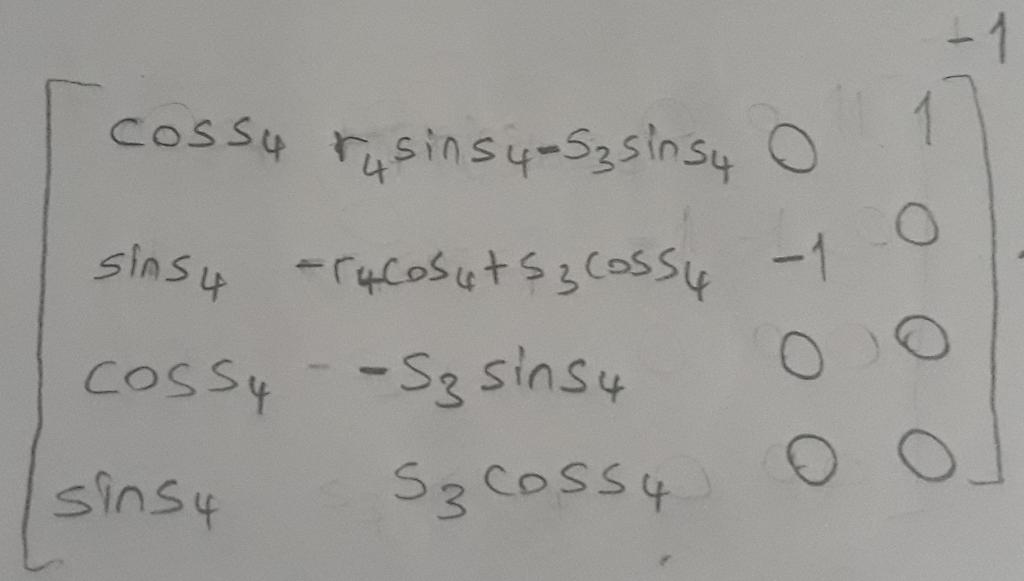 -1
cos s₄ r₄ sin s₄ - s₃ sin s₄ 0 1
sin s₄ -r₄ cos₄ + s₃ cos s₄ -1 0
cos s₄ - -s₃ sin s₄ 0 0
sin s₄ s₃ cos s₄ 0 0